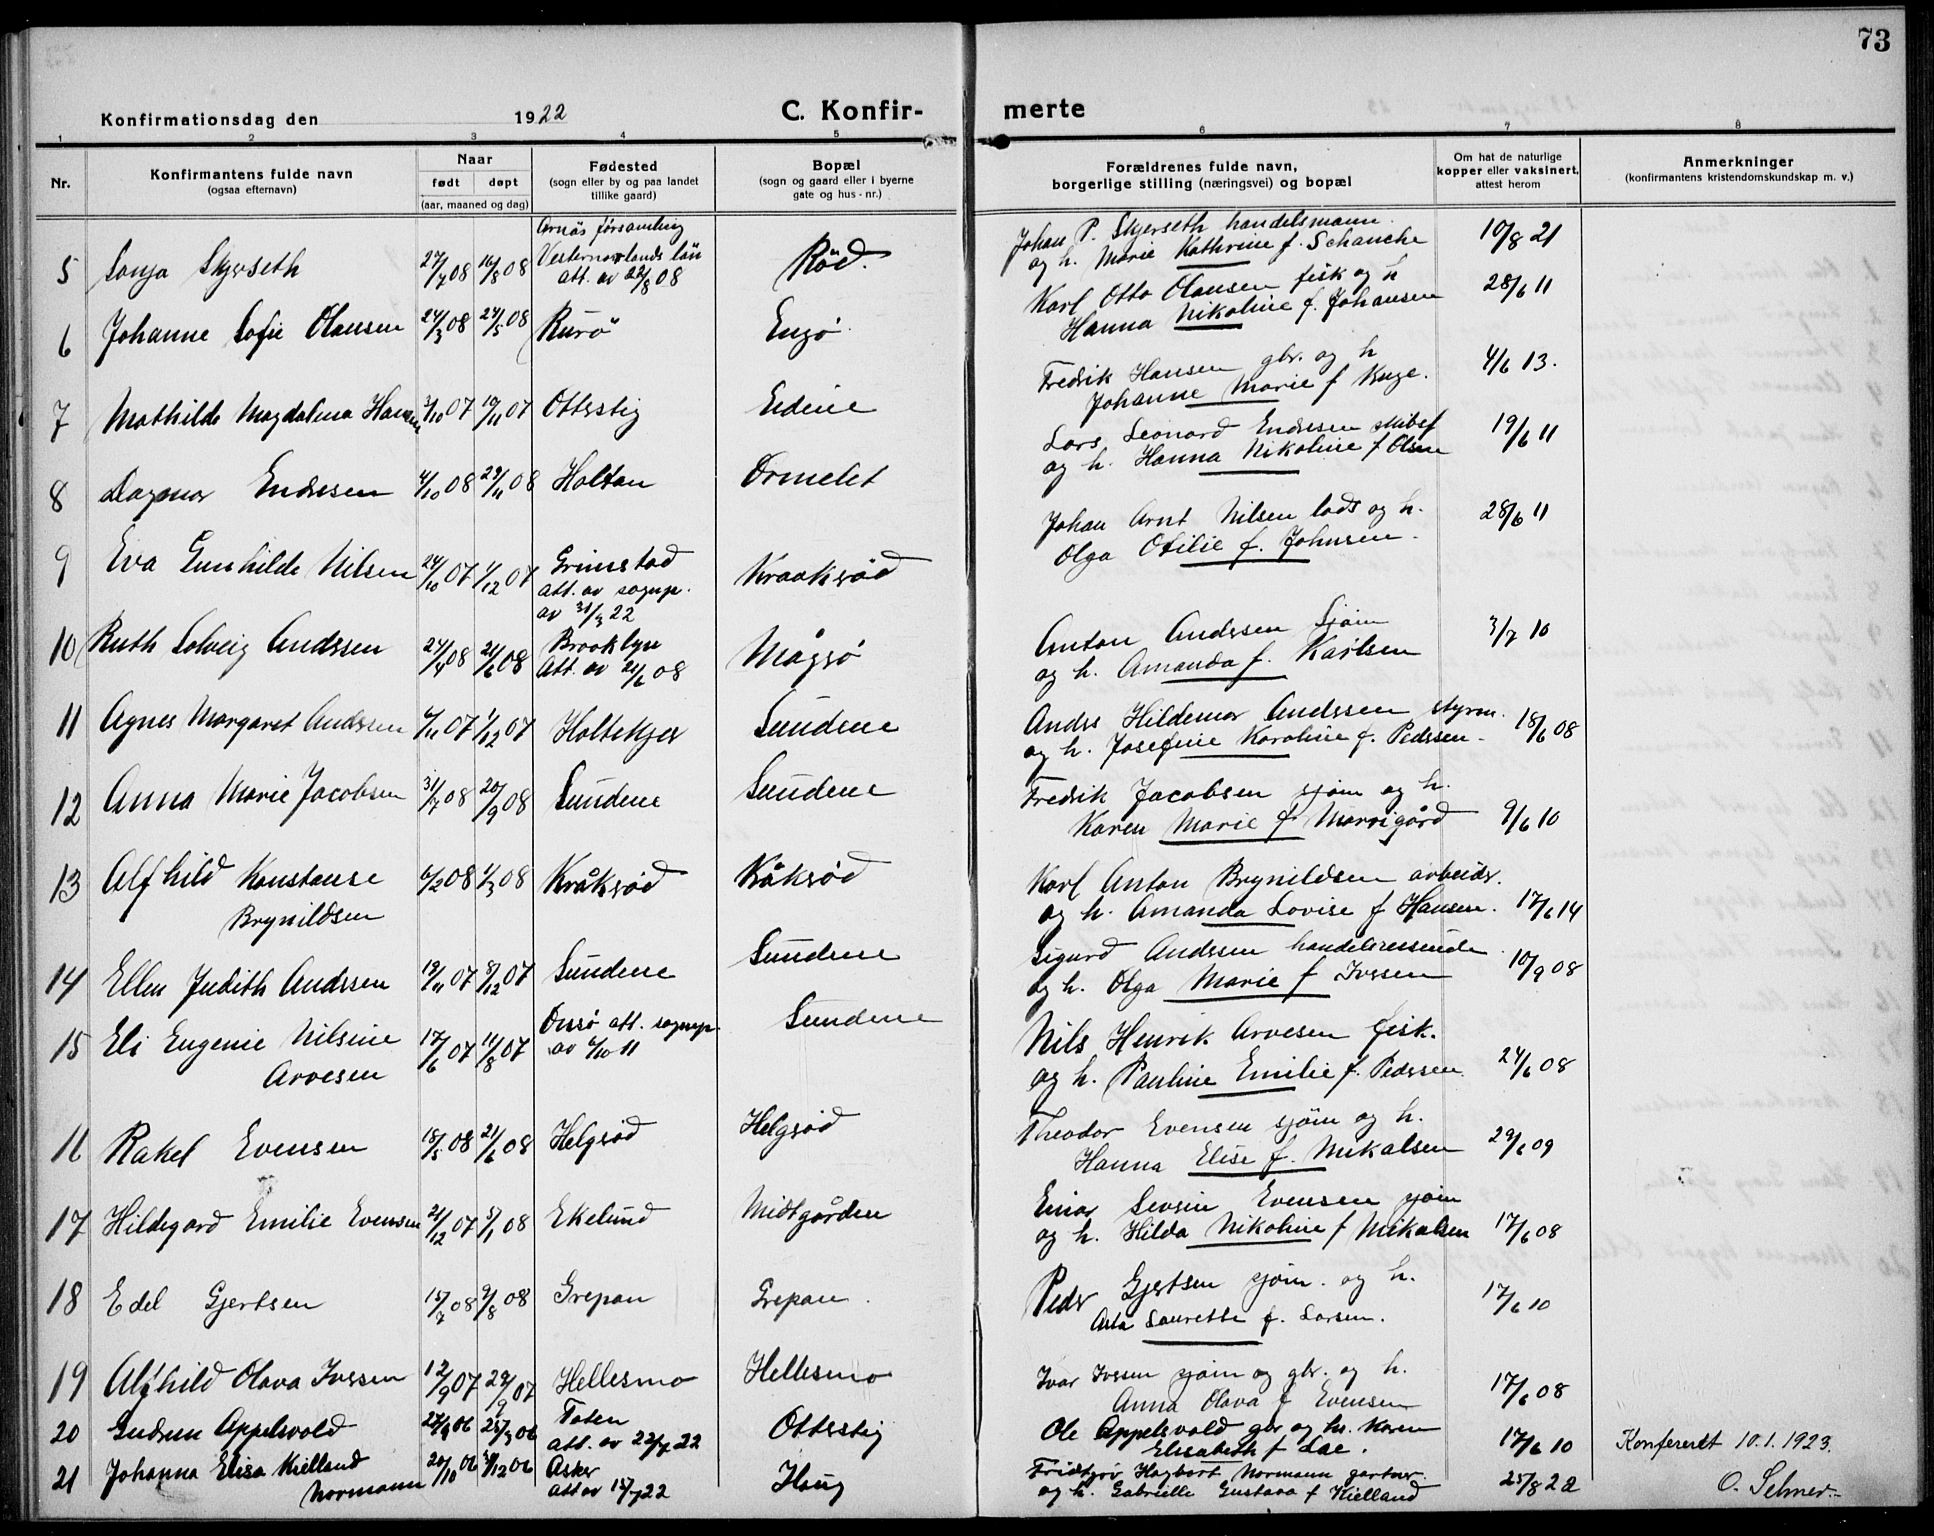 73
Konfirmationsdag den 1922
C. Konfirmerte
1 2 3 4 5 6 7 8
Nr.
Konfirmantens fulde navn
(ogsaa efternavn)
Naar
født døpt
(aar, maaned og dag)
Fødested
(sogn eller by og paa landet
tillike gaard)
Bopæl
(sogn og gaard eller i byerne
gate og hus - nr.)
Forældrenes fulde navn,
borgerlige stilling (næringsvei) og bopæl
Om hat de naturlige
kopper eller vaksinert,
attest herom
Anmerkninger
(konfirmantens kristendomskundskap m. v.)
Arnäs församling
5 Sonja Skjerseth 27/7 08 16/8 08 Vesternorlands län Rød.
att. av 22/8 08
Johan P. Skjerseth handelsmann.
og h. Marie Kathrine f. Schanche 10/8 21
6 Johanne Sofie Olausen 24/3 08 24/5 08 Kurø Engø
Karl Otto Olausen fisk og h
Hanna Nikoline f. Johansen 28/6 11
7 Mathilde Magdalena Hansen 3/10 07 10/11 07 Ottestig Eidene
Fredrik Hansen gbr. og h
Johanne Marie f Knge. 4/6 13.
8 Dagmar Endresen 4/10 08 29/11 08 Holtan Ormelet
Lars Leonard Endresen skibsf
og h. Hanna Nikoline f Olsen 19/6 11
9 Eva Gunhilde Nilsen 24/10 07 1/12 07 Grimstad Kraakerød
att. av sognep.
av 31/3 22
Johan Arnt Nilsen lods og h.
Olga Otilie f. Johnsen. 28/6 11
10 Ruth Solveig Andersen 24/4 08 21/6 08 Brooklyn Mågerø
Att. av 21/6 08
Anton Andersen Sjøm
og h. Amanda f. Karlsen 3/7 10
11 Agnes Margaret Andersen 4/11 07 1/12 07 Holtekjær Sundene
Anders Hildemar Andersen styrm.
og h. Josefine Karoline f. Pedersen. 18/6 08
12 Anna Marie Jacobsen 31/7 08 20/9 08 Sundene Sundene
Fredrik Jacobsen sjøm og h.
Karen Marie f. Morsigård 9/6 10
13 Alfhild Konstanse 6/2 08 1/3 08 Kråkerød Kråkerød
Brynildsen
Karl Anton Brynildsen arbeider.
og h. Amanda Lovise f Hansen. 17/6 14
14 Ellen Judith Andersen 19/11 07 8/12 07 Sundene Sundene
Sigurd Andersen handelsreisende
og h. Olga Marie f Iversen 10/9 08
15 Eli Eugenie Nilsine 17/6 07 11/8 07 Onsø att. sognep. Sundene
Arvesen av 4/10 11
Nils Henrik Arvesen fisk.
og h. Pauline Emilie f. Pedersen 24/6 08
16 Rakel Evensen 18/5 08 21/6 08 Helgerød Helgerød
Theodor Evensen sjøm og h.
Hanna Elise f. Mikalsen 29/6 09
17 Hildegard Emilie Evensen 21/12 07 5/1 08 Ekelund Midtgården
Einar Severin Evensen sjøm
og h. Hilda Nikoline f Mikalsen 17/6 08
18 Edel Gjertsen 15/7 08 9/8 08 Grepan Grepan.
Peder Gjertsen sjøm. og h.
Asta Laurette f. Larsen. 17/6 10
19 Alfhild Olava Iversen 12/9 07 29/9 07 Hellesmo Hellesmo
Ivar Iversen sjøm og gbr. og h.
Anna Olava f Evensen 17/6 08
20 Gudrun Appelsvold 27/4 06 25/3 06 Toten Ottestig
att. av 22/4 22
Ole Appelsvold gbr og h. Karen
Elisabeth f Lae. 17/6 10
21 Johanna Elisa Kielland 20/10 06 31/12 06 Asker Haug
Normann att av 15/7 22
Fridtjov Hagbart Normann gartner.
og h. Gabrielle Gustava f Kielland 25/8 22
Konferert 10.1.1923.
O. Selmer.